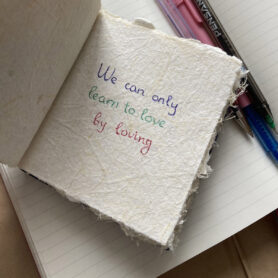 We can only
learn to love
by loving